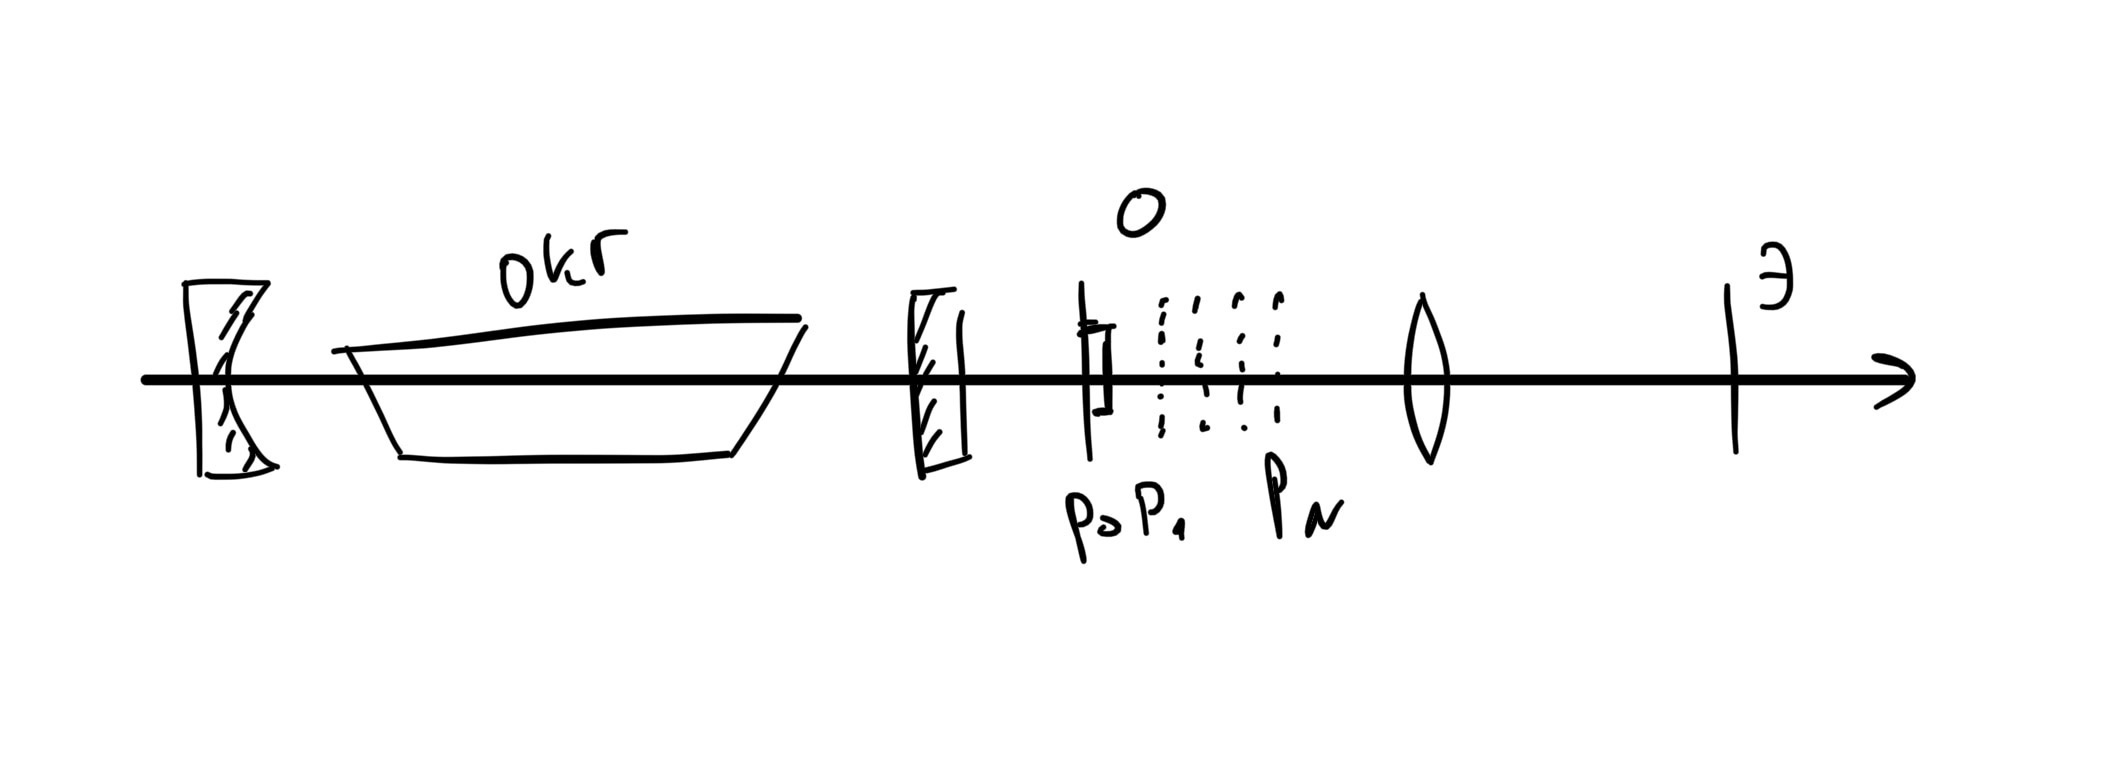 ОКГ
О
Э
P₀ P₁ P_N